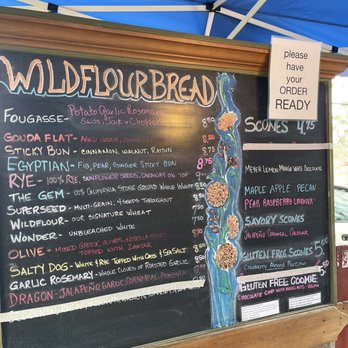 WILDFLOUR BREAD
please
have
your
ORDER
READY
FOUGASSE- Potato Garlic Rosemary
Jack + Cheddar 8.50
GOUDA FLAT- AGED GOUDA,
STICKY BUN- CINNAMON, WALNUT, RAISIN
EGYPTIAN- FIG, PEAR, GINGER STICKY BUN 8.75
RYE- 100% RYE, SUNFLOWER SEEDS,
THE GEM- 00% CALIFORNIA STONE GROUND WHOLE WHEAT
SUPERSEED- MULTI-GRAIN, 4 SEEDS THROUGHOUT
WILDFLOUR- OUR SIGNATURE WHEAT
WONDER- UNBLEACHED WHITE
OLIVE- MIXED GREEK OLIVES, NIGELLA SEED
TOPPED WITH ZAATAR
SALTY DOG- WHITE & RYE TOPPED WITH OATS & SEA SALT
GARLIC ROSEMARY- WHOLE CLOVES OF ROASTED GARLIC
DRAGON: JALAPEÑO, GARLIC, CORNMEAL, POLENTA
SCONES 4.75
MEYER LEMON MANGO WHITE CHOCOLATE
MAPLE APPLE PECAN
PEAR RASPBERRY
SAVORY SCONES
JALAPEÑO CHEDDAR
GLUTEN FREE SCONES 5.00
CRANBERRY ALMOND
GLUTEN FREE COOKIE 3.50
CHOCOLATE CHIP WITH HAZELNUTS